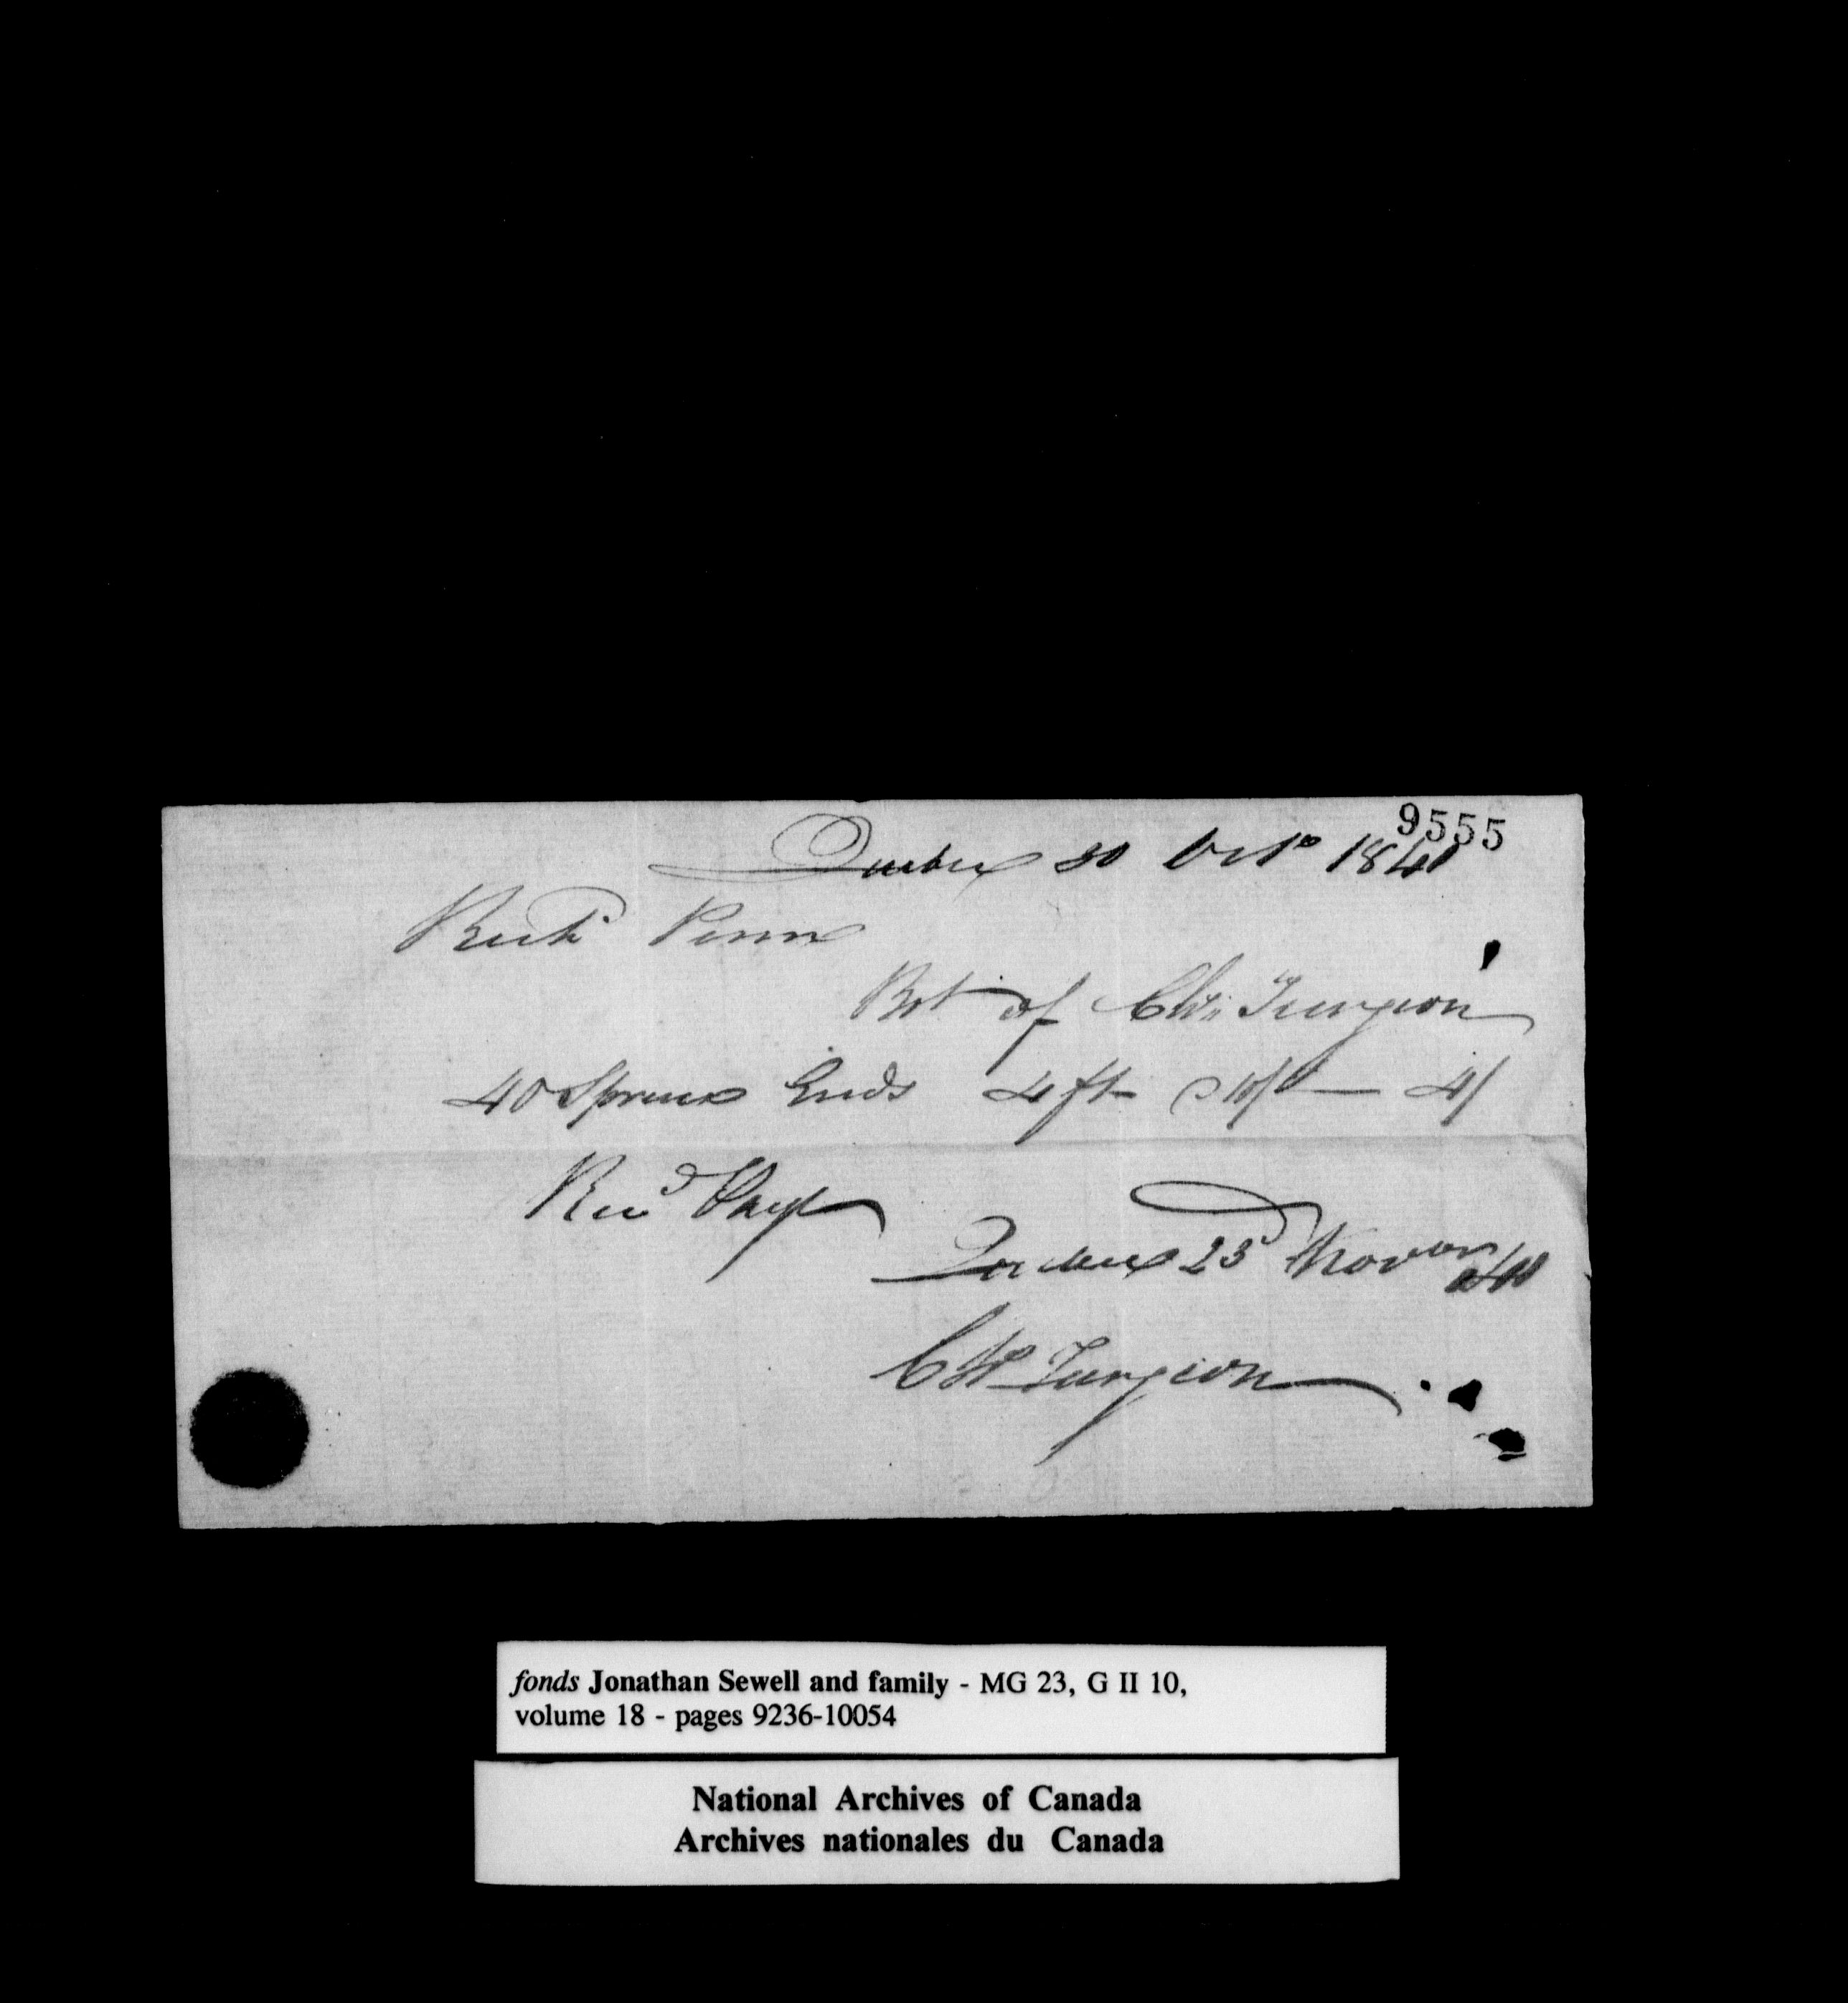 9555
Quebec 30 Octo 1840
Richd Penn
Bot of Chs Turgeon
40 Spruce Ends 4 ft @ 10/ — 4/
Recd Payt
Quebec 23 Novbr
Chs Turgeon
fonds Jonathan Sewell and family - MG 23, G II 10,
volume 18 - pages 9236-10054
National Archives of Canada
Archives nationales du Canada